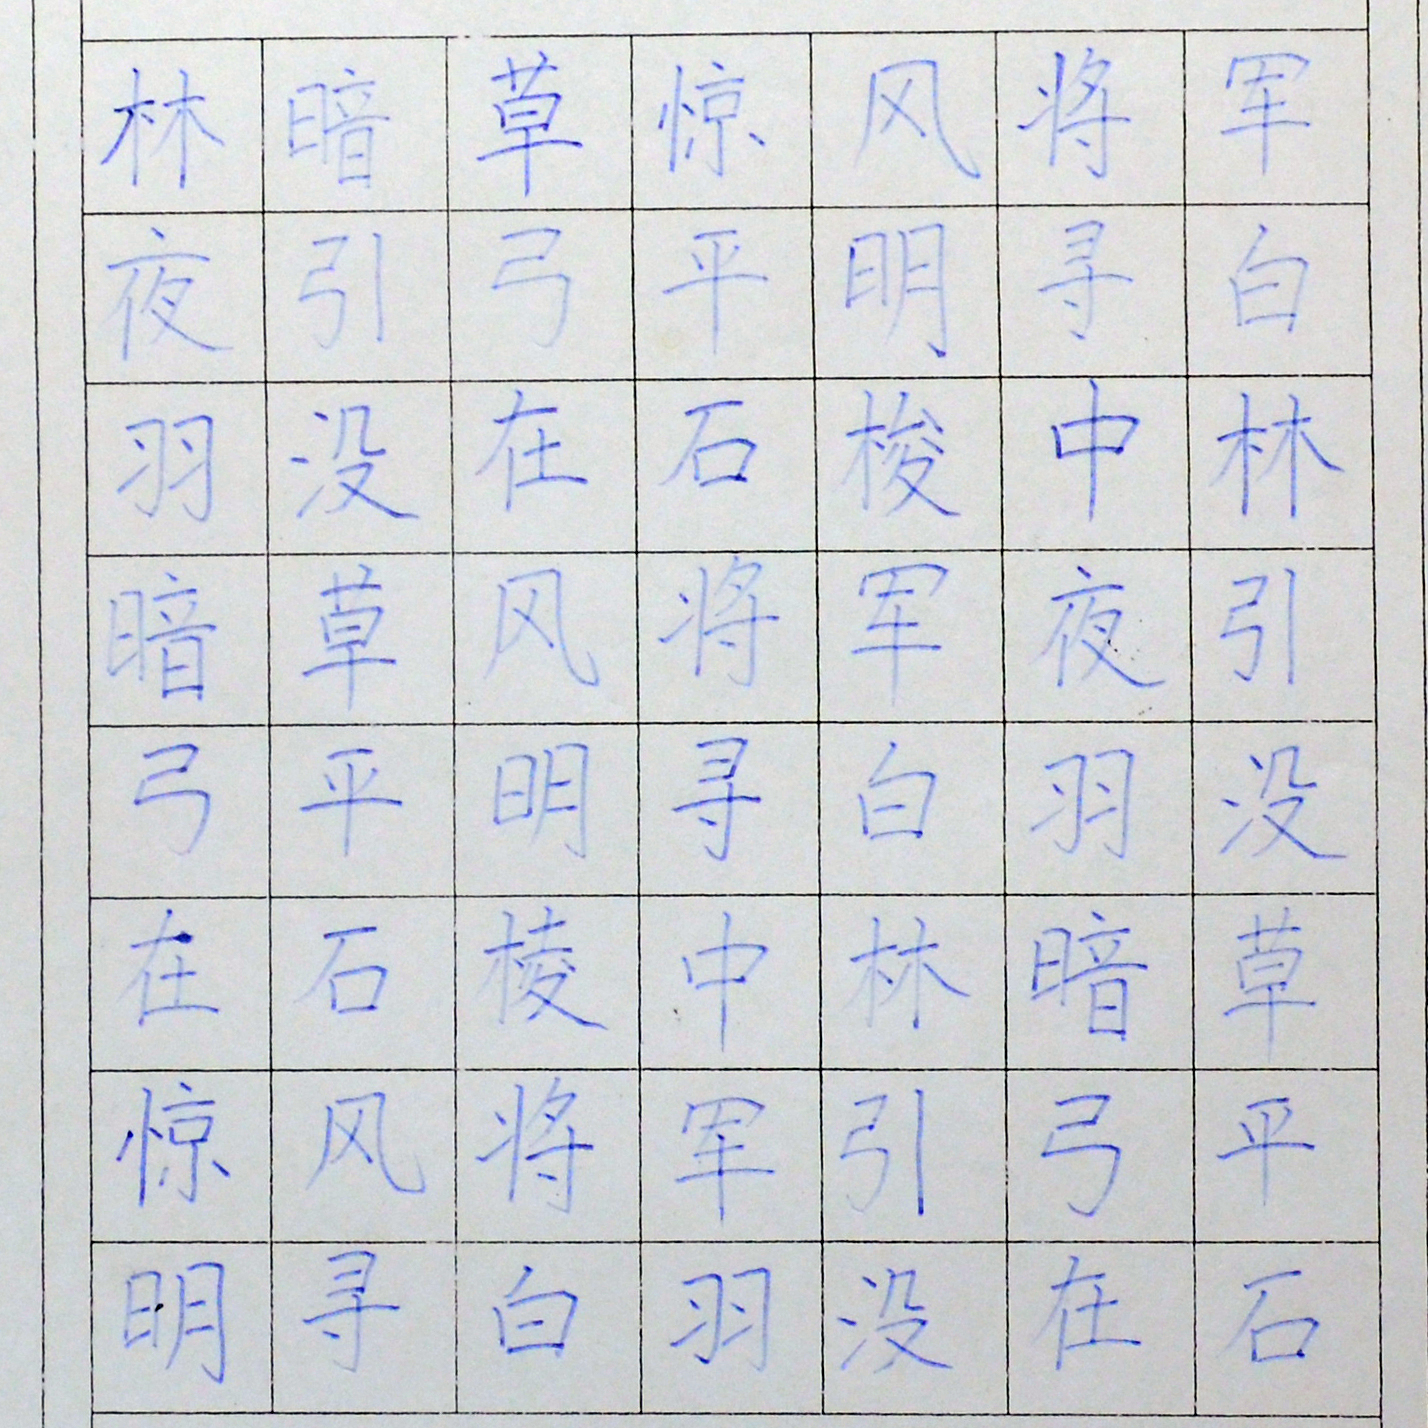 林暗草惊风将军
夜引弓平明寻白
羽没在石梭中林
暗草风将军夜引
弓平明寻白羽没
在石棱中林暗草
惊风将军引弓平
明寻白羽没在石